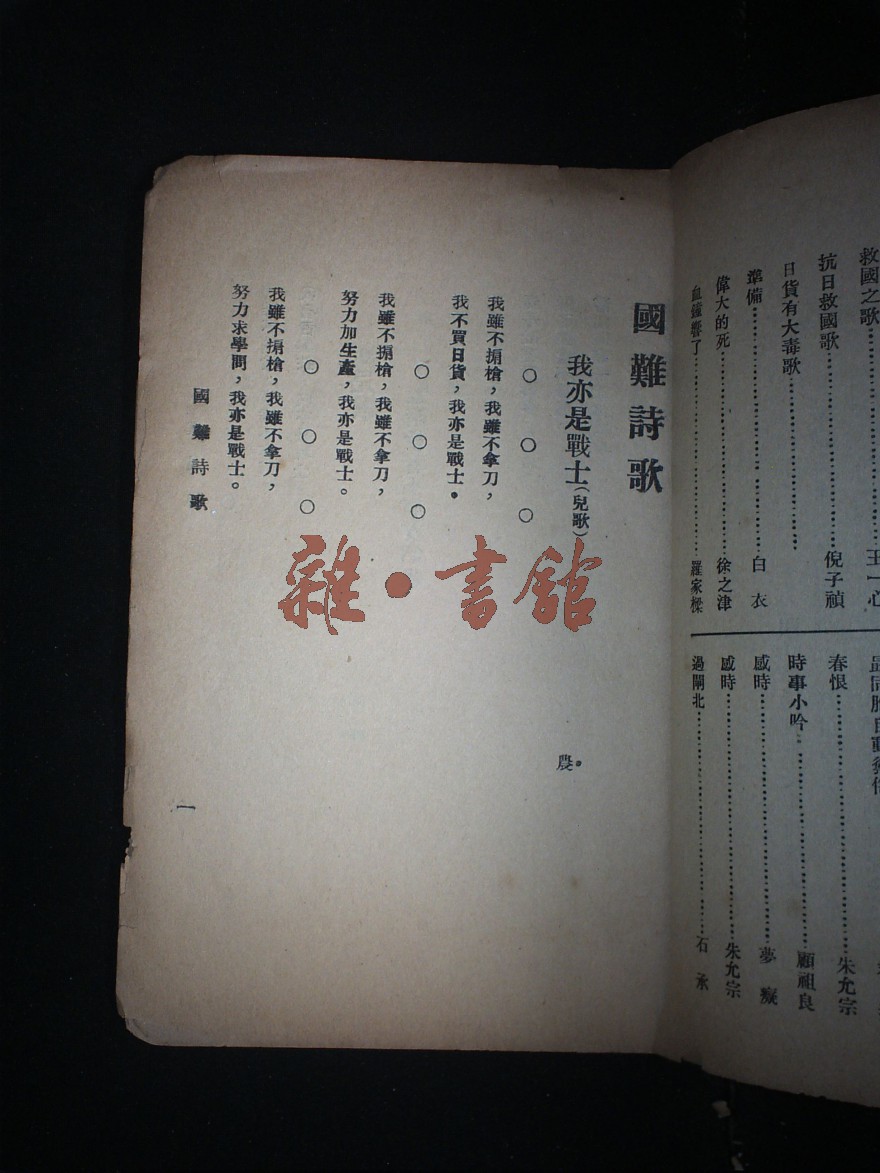 救國之歌 王一心
抗日救國歌 倪子禎
日貨有大毒歌
準備 白衣
偉大的死 徐之津
血鐘響了 羅家樑
春恨 朱允宗
時事小吟 顧祖良
感時 夢癡
感時 朱允宗
過閘北 石承
國難詩歌
我亦是戰士（兒歌） 農
○ ○ ○
我雖不揹槍，我雖不拿刀，
我不買日貨，我亦是戰士。
○ ○ ○
我雖不揹槍，我雖不拿刀，
努力加生產，我亦是戰士。
○ ○ ○
我雖不揹槍，我雖不拿刀，
努力求學問，我亦是戰士。
國難詩歌
一
雜·書館